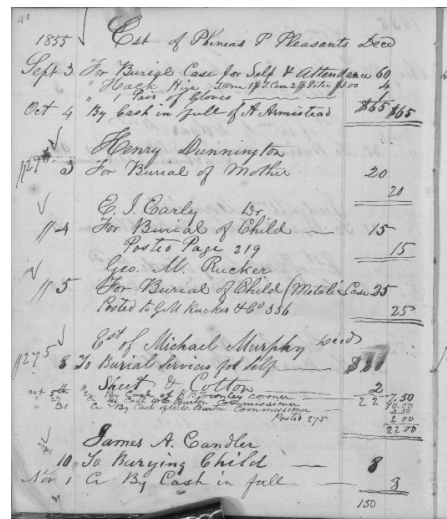 40
1855 Est of Phineas P Pleasants Decd
Sept 3 For Burial Case for Self & Attendance 60
" Hack Hire 4
" 1 Pair of Gloves 1
$65
Oct 4 By Cash in full of A Armistead $65
Henry Dunnington
" 3 For Burial of Mother 20
20
E. J. Early Dr
" 4 For Burial of Child — 15
Posted Page 219 15
Geo. M. Rucker
" 5 For Burial of Child (Metalic Case 25
Posted to G M Rucker & Co 336 25
Est of Michael Murphy Decd
275
" 8 To Burial Services for Self —
" Sheet & Cotton 2
22 7.50
Cr By Cash of Burton Commissioner
2.00
Posted 275 22.00
James A. Candler
10 To Burying Child — 8
Nov 1 Cr By Cash in full —
150